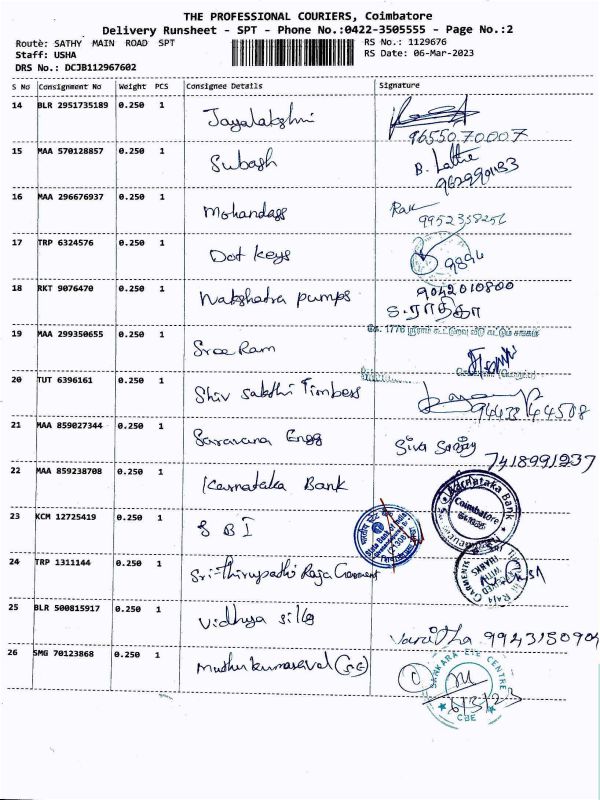 THE PROFESSIONAL COURIERS, Coimbatore
Delivery Runsheet - SPT - Phone No.:0422-3505555 - Page No.:2
Route: SATHY MAIN ROAD SPT
RS No.: 1129676
Staff: USHA
RS Date: 06-Mar-2023
DRS No.: DCJB112967602
S No Consignment No Weight PCS Consignee Details Signature
14 BLR 2951735189 0.250 1 Jayalakshmi
9655070007
15 MAA 570128857 0.250 1 Subash B. Latha
16 MAA 296676937 0.250 1 Mohandass
17 TRP 6324576 0.250 1 Dot keys 9894
18 RKT 9076470 0.250 1 Nakshatra pumps 9042010800
19 MAA 299350655 0.250 1 Sree Ram
20 TUT 6396161 0.250 1 Shiv sakthi Timbers
21 MAA 859027344 0.250 1 Saravana Engg Siva Sanjay
7418991237
22 MAA 859238708 0.250 1 Karnataka Bank Karnataka Bank Coimbatore
23 KCM 12725419 0.250 1 SBI State Bank of India
24 TRP 1311144 0.250 1 Sri-Thirupathi Raja Garment
25 BLR 500815917 0.250 1 Vidhya silks
26 SMG 70123868 0.250 1 Muthukumaravel SANKARA EYE CENTRE
6/3/23
CBE